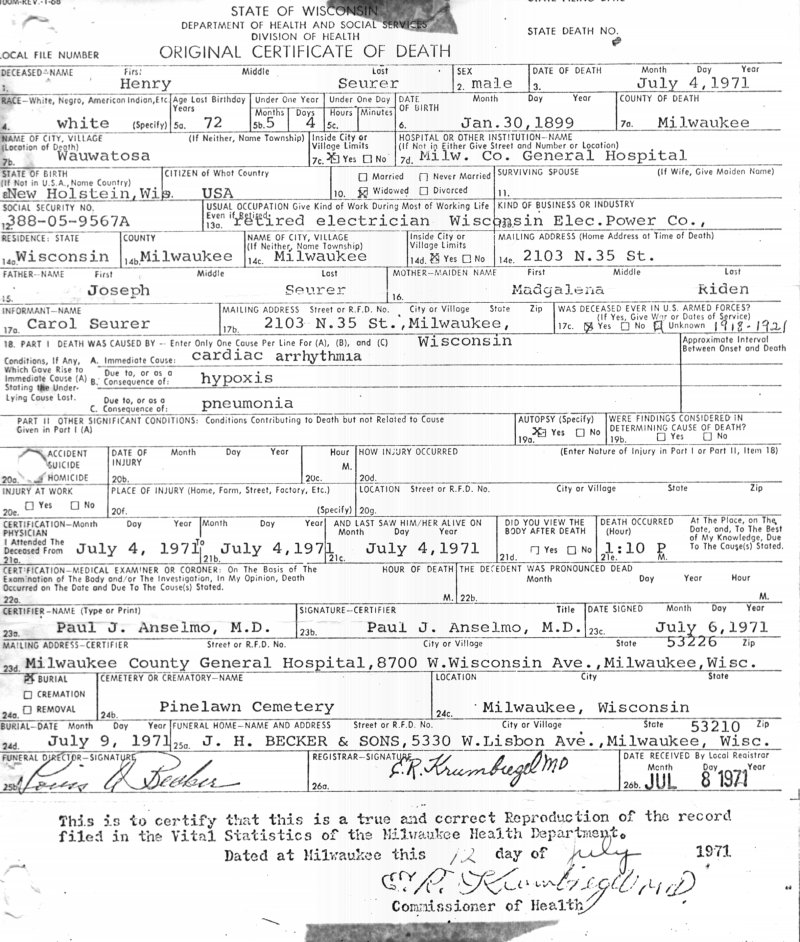 STATE OF WISCONSIN
DEPARTMENT OF HEALTH AND SOCIAL SERVICES
DIVISION OF HEALTH
STATE DEATH NO.
LOCAL FILE NUMBER
ORIGINAL CERTIFICATE OF DEATH
DECEASED-NAME First Middle Last SEX DATE OF DEATH Month Day Year
1. Henry Seurer 2. male 3. July 4, 1971
RACE-White, Negro, American Indian, Etc. Age Last Birthday Under One Year Under One Day DATE Month Day Year COUNTY OF DEATH
Years Months Days Hours Minutes OF BIRTH
4. white (Specify) 5a. 72 5b. 5 4 5c. 6. Jan.30,1899 7a. Milwaukee
NAME OF CITY, VILLAGE (If Neither, Name Township) Inside City or HOSPITAL OR OTHER INSTITUTION-NAME
(Location of Death) Village Limits (If Not in Either Give Street and Number or Location)
7b. Wauwatosa 7c. Yes No 7d. Milw. Co. General Hospital
STATE OF BIRTH CITIZEN OF What Country Married Never Married SURVIVING SPOUSE (If Wife, Give Maiden Name)
(If Not in U.S.A., Name Country)
8. New Holstein, Wis. USA 10. Widowed Divorced 11.
SOCIAL SECURITY NO. USUAL OCCUPATION Give Kind of Work During Most of Working Life KIND OF BUSINESS OR INDUSTRY
Even if Retired
12. 388-05-9567A 13a. retired electrician Wisconsin Elec.Power Co.,
RESIDENCE: STATE COUNTY NAME OF CITY, VILLAGE Inside City or MAILING ADDRESS (Home Address at Time of Death)
(If Neither, Name Township) Village Limits
14a. Wisconsin 14b. Milwaukee 14c. Milwaukee 14d. Yes No 14e. 2103 N.35 St.
FATHER-NAME First Middle Last MOTHER-MAIDEN NAME First Middle Last
15. Joseph Seurer 16. Madgalena Riden
INFORMANT-NAME MAILING ADDRESS Street or R.F.D. No. City or Village State Zip WAS DECEASED EVER IN U.S. ARMED FORCES?
(If Yes, Give War or Dates of Service)
17a. Carol Seurer 17b. 2103 N.35 St.,Milwaukee, 17c. Yes No Unknown 1918-1921
18. PART I DEATH WAS CAUSED BY - Enter Only One Cause Per Line For (A), (B), and (C) Wisconsin Approximate Interval
Between Onset and Death
Conditions, If Any, A. Immediate Cause: cardiac arrhythmia
Which Gave Rise to
Immediate Cause (A) B. Due to, or as a Consequence of: hypoxis
Stating the Under-
Lying Cause Last. C. Due to, or as a Consequence of: pneumonia
PART II OTHER SIGNIFICANT CONDITIONS: Conditions Contributing to Death but not Related to Cause AUTOPSY (Specify) WERE FINDINGS CONSIDERED IN
Given in Part I (A) 19a. Yes No DETERMINING CAUSE OF DEATH?
19b. Yes No
ACCIDENT DATE OF Month Day Year Hour HOW INJURY OCCURRED (Enter Nature of Injury in Part I or Part II, Item 18)
SUICIDE INJURY M.
20a. HOMICIDE 20b. 20c. 20d.
INJURY AT WORK PLACE OF INJURY (Home, Farm, Street, Factory, Etc.) LOCATION Street or R.F.D. No. City or Village State Zip
20e. Yes No 20f. (Specify) 20g.
CERTIFICATION-Month Day Year Month Day Year AND LAST SAW HIM/HER ALIVE ON DID YOU VIEW THE DEATH OCCURRED At The Place, on The
PHYSICIAN Month Day Year BODY AFTER DEATH (Hour) Date, and, To The Best
I Attended the of My Knowledge, Due
Deceased From July 4, 1971 To July 4,1971 July 4,1971 Yes No 1:10 P To The Cause(s) Stated.
21a. 21b. 21c. 21d. 21e. M.
CERTIFICATION-MEDICAL EXAMINER OR CORONER: On The Basis of The HOUR OF DEATH THE DECEDENT WAS PRONOUNCED DEAD
Examination of The Body and/or The Investigation, In My Opinion, Death Month Day Year Hour
Occurred on The Date and Due To The Cause(s) Stated.
22a. M. 22b. M.
CERTIFIER-NAME (Type or Print) SIGNATURE-CERTIFIER Title DATE SIGNED Month Day Year
23a. Paul J. Anselmo, M.D. 23b. Paul J. Anselmo, M.D. 23c. July 6,1971
MAILING ADDRESS-CERTIFIER Street or R.F.D. No. City or Village State 53226 Zip
23d. Milwaukee County General Hospital,8700 W.Wisconsin Ave.,Milwaukee,Wisc.
BURIAL CEMETERY OR CREMATORY-NAME LOCATION City State
CREMATION
24a. REMOVAL 24b. Pinelawn Cemetery 24c. Milwaukee, Wisconsin
BURIAL-DATE Month Day Year FUNERAL HOME-NAME AND ADDRESS Street or R.F.D. No. City or Village State 53210 Zip
24d. July 9, 1971 25a. J. H. BECKER & SONS,5330 W.Lisbon Ave.,Milwaukee, Wisc.
FUNERAL DIRECTOR-SIGNATURE REGISTRAR-SIGNATURE DATE RECEIVED By Local Registrar
Month Day Year
25b. Louis A Becker 26a. E.R. Krumbiegel MD 26b. JUL 8 1971
This is to certify that this is a true and correct Reproduction of the record
filed in the Vital Statistics of the Milwaukee Health Department.
Dated at Milwaukee this 12 day of July 1971
E. R. Krumbiegel M D
Commissioner of Health